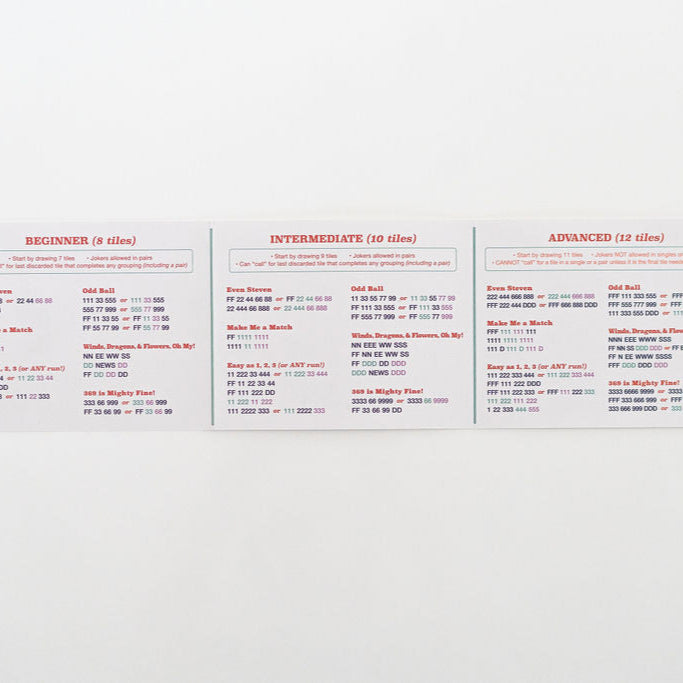 BEGINNER (8 tiles)
• Start by drawing 7 tiles • Jokers allowed in pairs
for last discarded tile that completes any grouping (including a pair)
or 22 44 66 88
or ANY run!)
or 11 22 33 44
or 111 22 333
Odd Ball
111 33 555 or 111 33 555
555 77 999 or 555 77 999
FF 11 33 55 or FF 11 33 55
FF 55 77 99 or FF 55 77 99
Winds, Dragons, & Flowers, Oh My!
NN EE WW SS
DD NEWS DD
FF DD DD DD
369 is Mighty Fine!
333 66 999 or 333 66 999
FF 33 66 99 or FF 33 66 99
INTERMEDIATE (10 tiles)
• Start by drawing 9 tiles • Jokers allowed in pairs
• Can "call" for last discarded tile that completes any grouping (including a pair)
Even Steven
FF 22 44 66 88 or FF 22 44 66 88
22 444 66 888 or 22 444 66 888
Make Me a Match
FF 1111 1111
1111 11 1111
Easy as 1, 2, 3 (or ANY run!)
11 222 33 444 or 11 222 33 444
FF 11 22 33 44
FF 111 222 DD
11 222 11 222
111 2222 333 or 111 2222 333
Odd Ball
11 33 55 77 99 or 11 33 55 77 99
FF 111 33 555 or FF 111 33 555
FF 555 77 999 or FF 555 77 999
Winds, Dragons, & Flowers, Oh My!
NN EEE WW SSS
FF NN EE WW SS
FF DDD DD DDD
DDD NEWS DDD
369 is Mighty Fine!
3333 66 9999 or 3333 66 9999
FF 33 66 99 DD
ADVANCED (12 tiles)
• Start by drawing 11 tiles • Jokers NOT allowed in singles
• CANNOT "call" for a tile in a single or a pair unless it is the final tile
Even Steven
222 444 666 888 or 222 444 666 888
FFF 222 444 DDD or FFF 666 888 DDD
Make Me a Match
FFF 111 111 111
1111 1111 1111
111 D 111 D 111 D
Easy as 1, 2, 3 (or ANY run!)
111 222 333 444 or 111 222 333 444
FFF 111 222 DDD
FFF 111 222 333 or FFF 111 222 333
111 222 111 222
1 22 333 444 555
Odd Ball
FFF 111 333 555 or FFF
FFF 555 777 999 or FFF
111 333 555 DDD or
Winds, Dragons, &
NNN EEE WWW SSS
FF NN SS DDD DDD or FF
FF N EE WWW SSSS
FFF DDD DDD DDD
369 is Mighty Fine!
3333 6666 9999 or
FFF 333 666 999 or FFF
333 666 999 DDD or